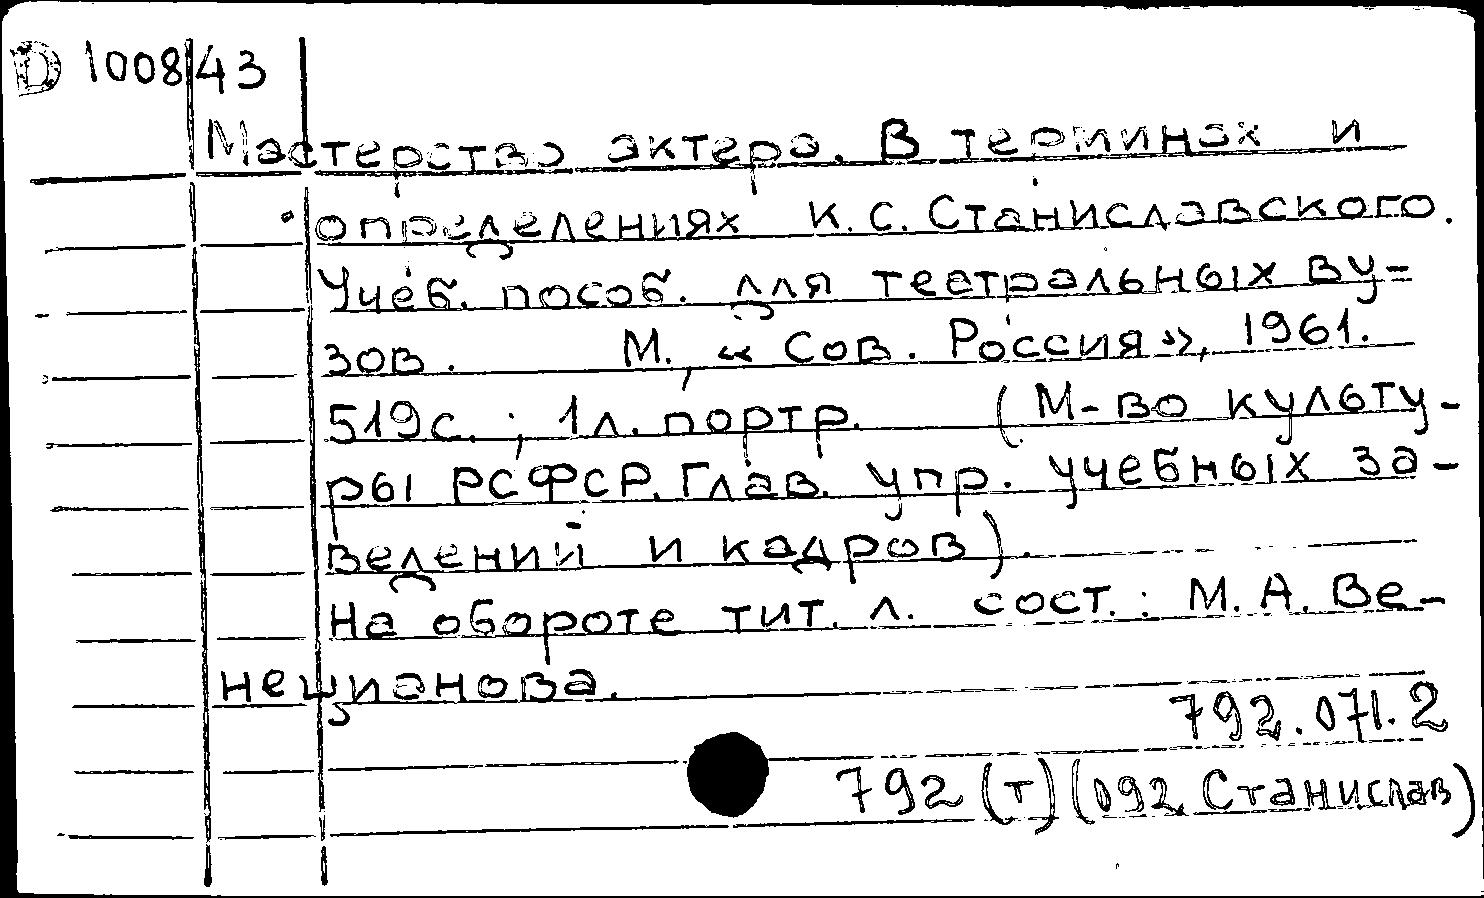 D 1008/43
Мастерство актера. В терминах и
определениях К. С. Станиславского.
Учеб. пособ. для театральных ву=
зов. М., «Сов. Россия», 1961.
519с.; 1л. портр. (М-во культу-
ры РСФСР. Глав. упр. учебных за-
ведений и кадров).
На обороте тит. л. сост.: М. А. Ве-
нецианова.
792.071.2
792 (т) (092 Станислав)